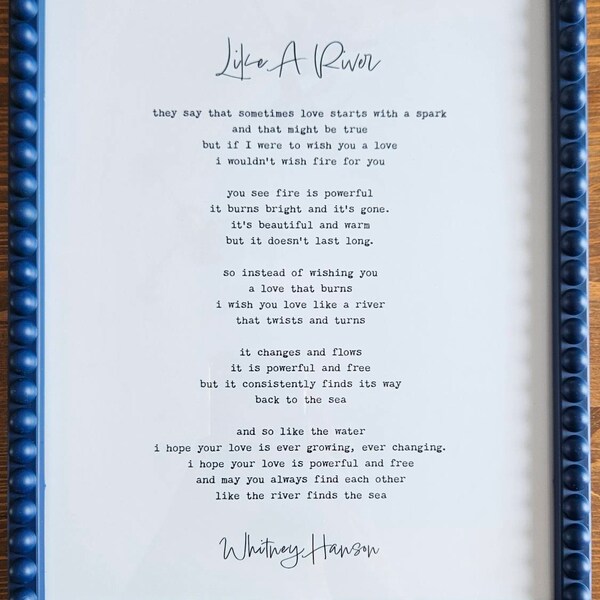 Like A River
they say that sometimes love starts with a spark
and that might be true
but if I were to wish you a love
i wouldn't wish fire for you
you see fire is powerful
it burns bright and it's gone.
it's beautiful and warm
but it doesn't last long.
so instead of wishing you
a love that burns
i wish you love like a river
that twists and turns
it changes and flows
it is powerful and free
but it consistently finds its way
back to the sea
and so like the water
i hope your love is ever growing, ever changing.
i hope your love is powerful and free
and may you always find each other
like the river finds the sea
Whitney Hanson